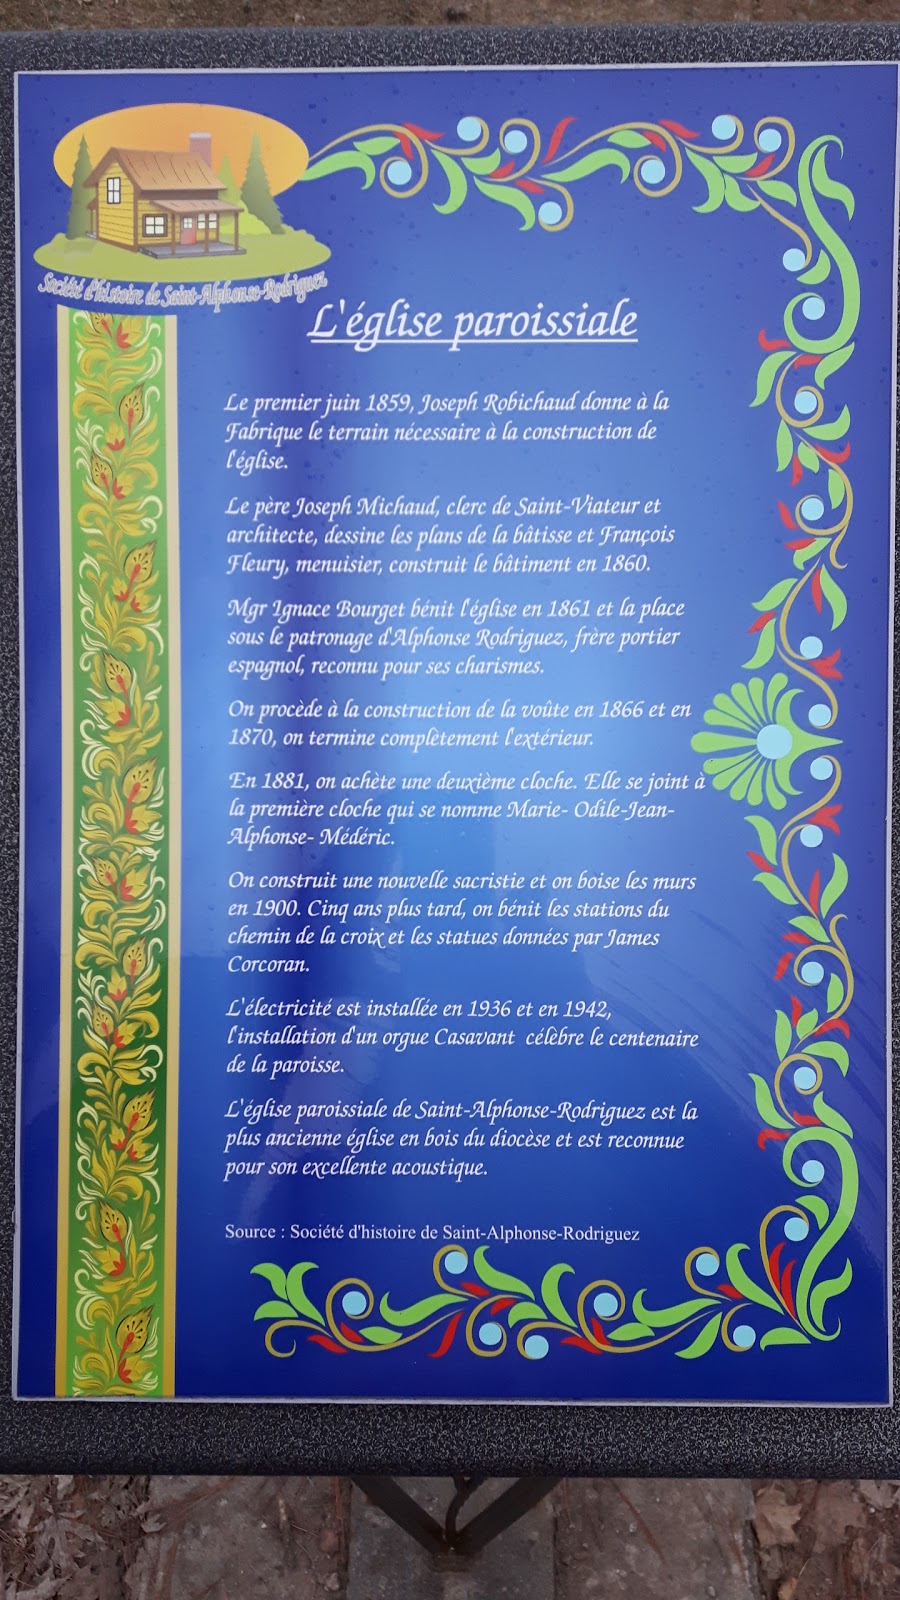 Société d'histoire de Saint-Alphonse-Rodriguez
L'église paroissiale
Le premier juin 1859, Joseph Robichaud donne à la
Fabrique le terrain nécessaire à la construction de
l'église.
Le père Joseph Michaud, clerc de Saint-Viateur et
architecte, dessine les plans de la bâtisse et François
Fleury, menuisier, construit le bâtiment en 1860.
Mgr Ignace Bourget bénit l'église en 1861 et la place
sous le patronage d'Alphonse Rodriguez, frère portier
espagnol, reconnu pour ses charismes.
On procède à la construction de la voûte en 1866 et en
1870, on termine complètement l'extérieur.
En 1881, on achète une deuxième cloche. Elle se joint à
la première cloche qui se nomme Marie- Odile-Jean-
Alphonse- Médéric.
On construit une nouvelle sacristie et on boise les murs
en 1900. Cinq ans plus tard, on bénit les stations du
chemin de la croix et les statues données par James
Corcoran.
L'électricité est installée en 1936 et en 1942,
l'installation d'un orgue Casavant célèbre le centenaire
de la paroisse.
L'église paroissiale de Saint-Alphonse-Rodriguez est la
plus ancienne église en bois du diocèse et est reconnue
pour son excellente acoustique.
Source : Société d'histoire de Saint-Alphonse-Rodriguez